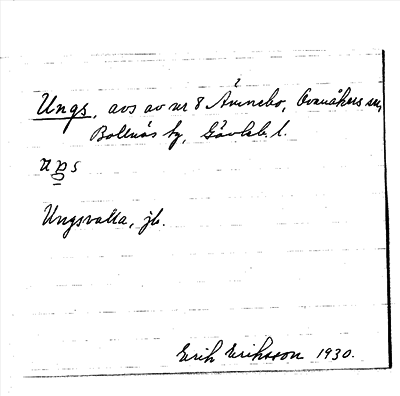 Ungs, avs av nr 8 Ämnebo, Ovanåkers sn,
Bollnäs tg, Gävleb. l.
Ungsvalla, jb.
Erik Eriksson 1930.